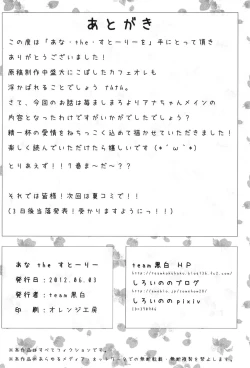 あとがき
この度は「あな・the・すとーりーを」手にとって頂き
ありがとうございました！
原稿制作中盛大にこぼしたカフェオレも
浮かばれることでしょう
さて、今回のお話は苺ましまろよりアナちゃんメインの
内容となったわけですがいかがでしたでしょう？
精一杯の愛情をねちっこく込めて描かせていただきました！
楽しく読んでいただけたら嬉しいです（＊´ω｀＊）
とりあえず！！
それでは皆様！次回は夏コミで！！
（3日後当落発表！受かりますようにっ！！）
あな the すとーりー
発行日：2012.06.03
発行者：team黒白
印　刷：オレンジ工房
team黒白 HP
しろいののブログ
しろいののpixiv